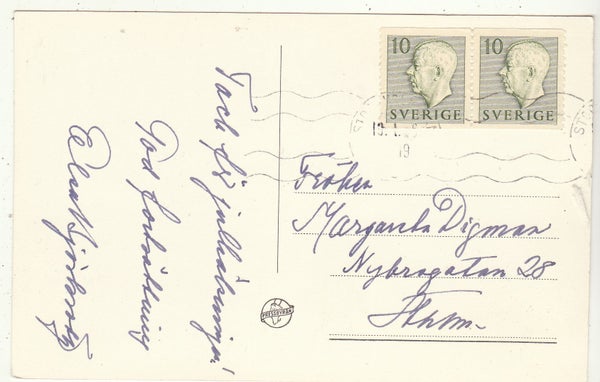 Tack för julhälsningen!
God fortsättning
Elsa
10 10
SVERIGE SVERIGE
19
Fröken
Margareta Digman
Nybrogatan 28
Sthlm.
PRESSBYRÅN